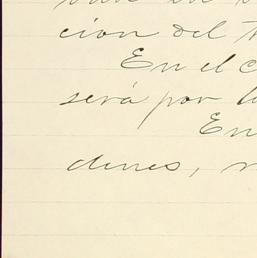 cion del
En el c
será por l
En
denes,